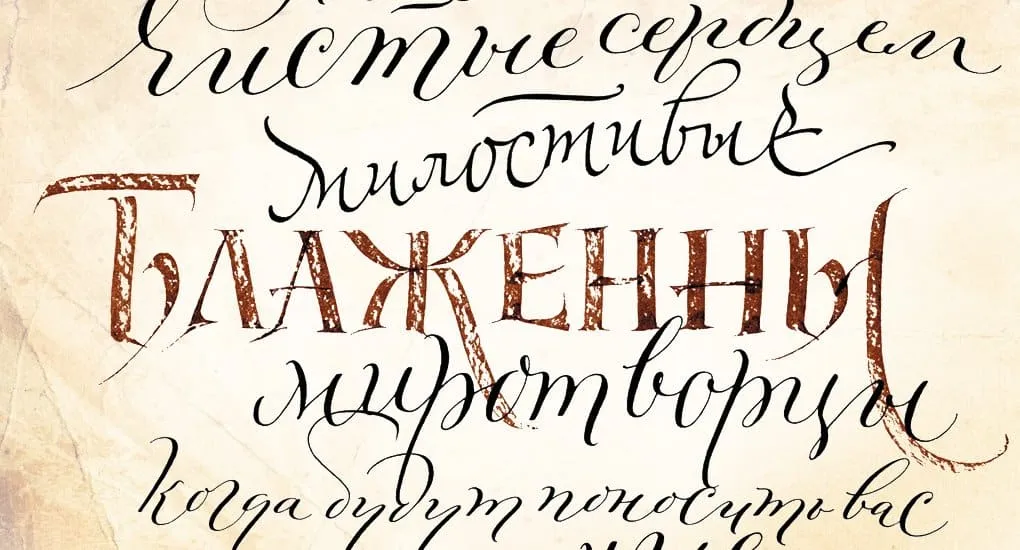 Чистые сердцем
милостивые
БЛАЖЕННЫ
миротворцы
Когда будут поносить вас